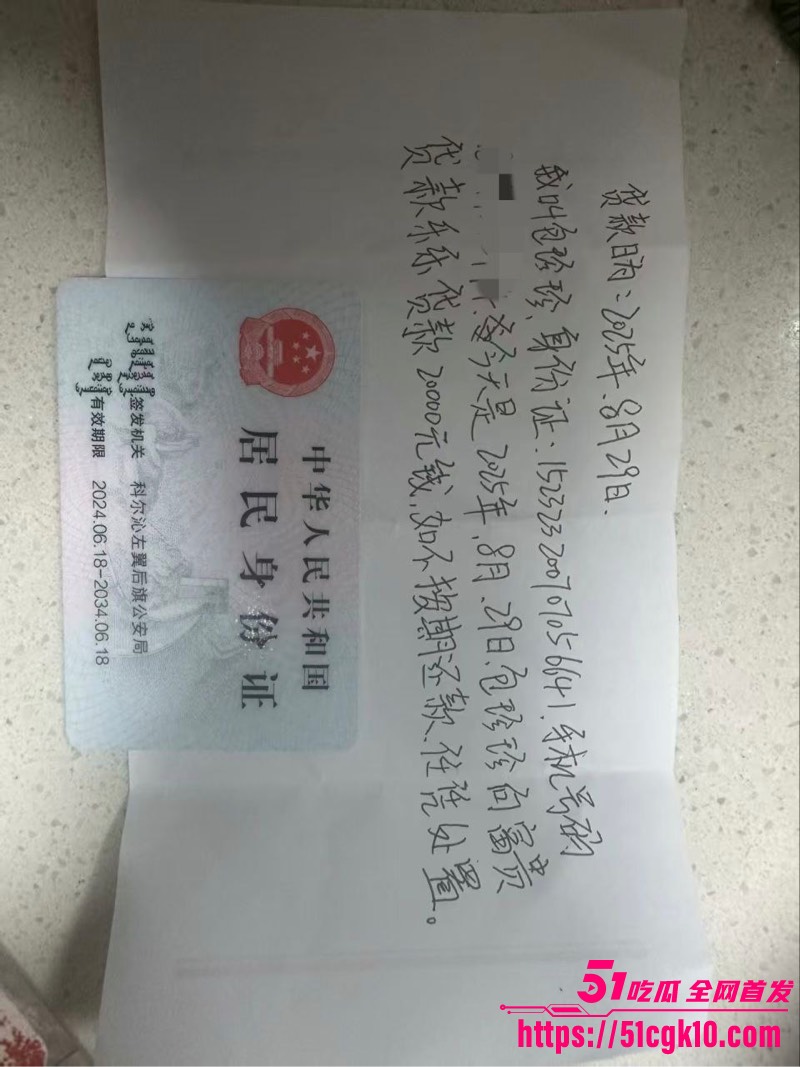 贷款日为：2025年、8月29日.
我叫[姓名略]、身份证：[号码略]、手机号码
今天是2025年、8月、29日、[姓名略]向富贵
贷款乐乐贷款20000元钱，如不按期还款.任凭处置。
中华人民共和国
居民身份证
签发机关 科尔沁左翼后旗公安局
有效期限 2024.06.18-2034.06.18
51吃瓜 全网首发
https://51cgk10.com